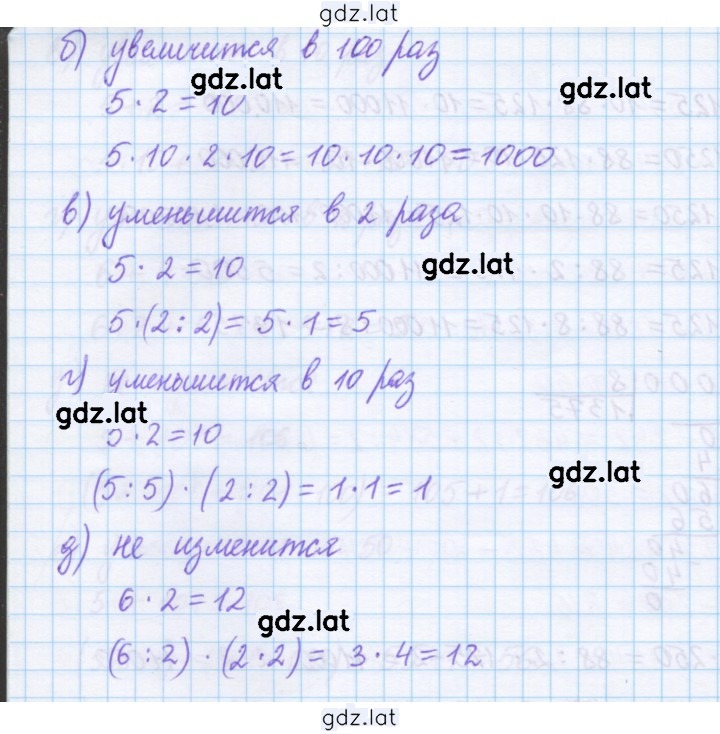 gdz.lat
б) увеличится в 100 раз
gdz.lat
gdz.lat
5 · 2 = 10
5 · 10 · 2 · 10 = 10 · 10 · 10 = 1000
в) уменьшится в 2 раза
5 · 2 = 10
gdz.lat
5 · (2 : 2) = 5 · 1 = 5
г) уменьшится в 10 раз
gdz.lat
5 · 2 = 10
gdz.lat
(5 : 5) · (2 : 2) = 1 · 1 = 1
д) не изменится
6 · 2 = 12
gdz.lat
(6 : 2) · (2 · 2) = 3 · 4 = 12
gdz.lat